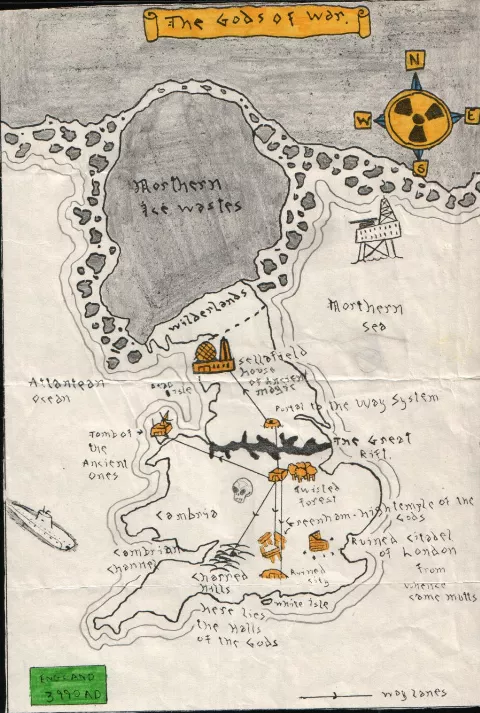 The Gods of War.
N
W
E
S
Northern
Ice wastes
Wilderlands
Northern
Sea
Sellafield
house
of Ancient
magic
Atlantean
Ocean
Dead
isle
Portal to the Way System
Tomb of
the
Ancient
Ones
The Great
Rift.
Twisted
forest
Cambria
Greenham-High temple of the
Gods
Cambrian
Channel
Ruined Citadel
of London
from
whence
came mutts
Charred
Hills
Ruined
City
White isle
Here lies
the Halls
of the Gods
ENGLAND
3990 AD
way lanes